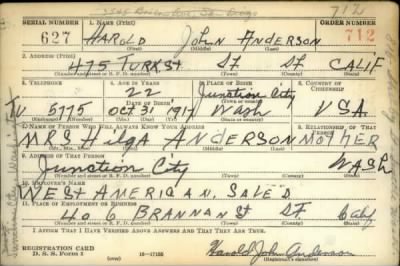 712
SERIAL NUMBER 1. NAME (Print) ORDER NUMBER
627 HAROLD JOHN ANDERSON 712
(First) (Middle) (Last)
2. ADDRESS (Print)
475 TURK ST SF. SF. CALIF
(Number and street or R. F. D. number) (Town) (County) (State)
3. TELEPHONE 4. AGE IN YEARS 5. PLACE OF BIRTH 6. COUNTRY OF CITIZENSHIP
22 Junction City
DATE OF BIRTH (Town or county)
TU 5775 OCT 31 1917 Wash USA
7. NAME OF PERSON WHO WILL ALWAYS KNOW YOUR ADDRESS 8. RELATIONSHIP OF THAT PERSON
MRS Hilga ANDERSON MOTHER
9. ADDRESS OF THAT PERSON
Junction City WASH
(Number and street or R. F. D. number) (Town) (County) (State)
10. EMPLOYER'S NAME
WEST AMERICAN. SALES
11. PLACE OF EMPLOYMENT OR BUSINESS
406 BRANNAN St SF. Calif
(Number and street or R. F. D. number) (Town) (County) (State)
I AFFIRM THAT I HAVE VERIFIED ABOVE ANSWERS AND THAT THEY ARE TRUE.
REGISTRATION CARD
D. S. S. Form 1 (over) 16—17105 Harold John Anderson